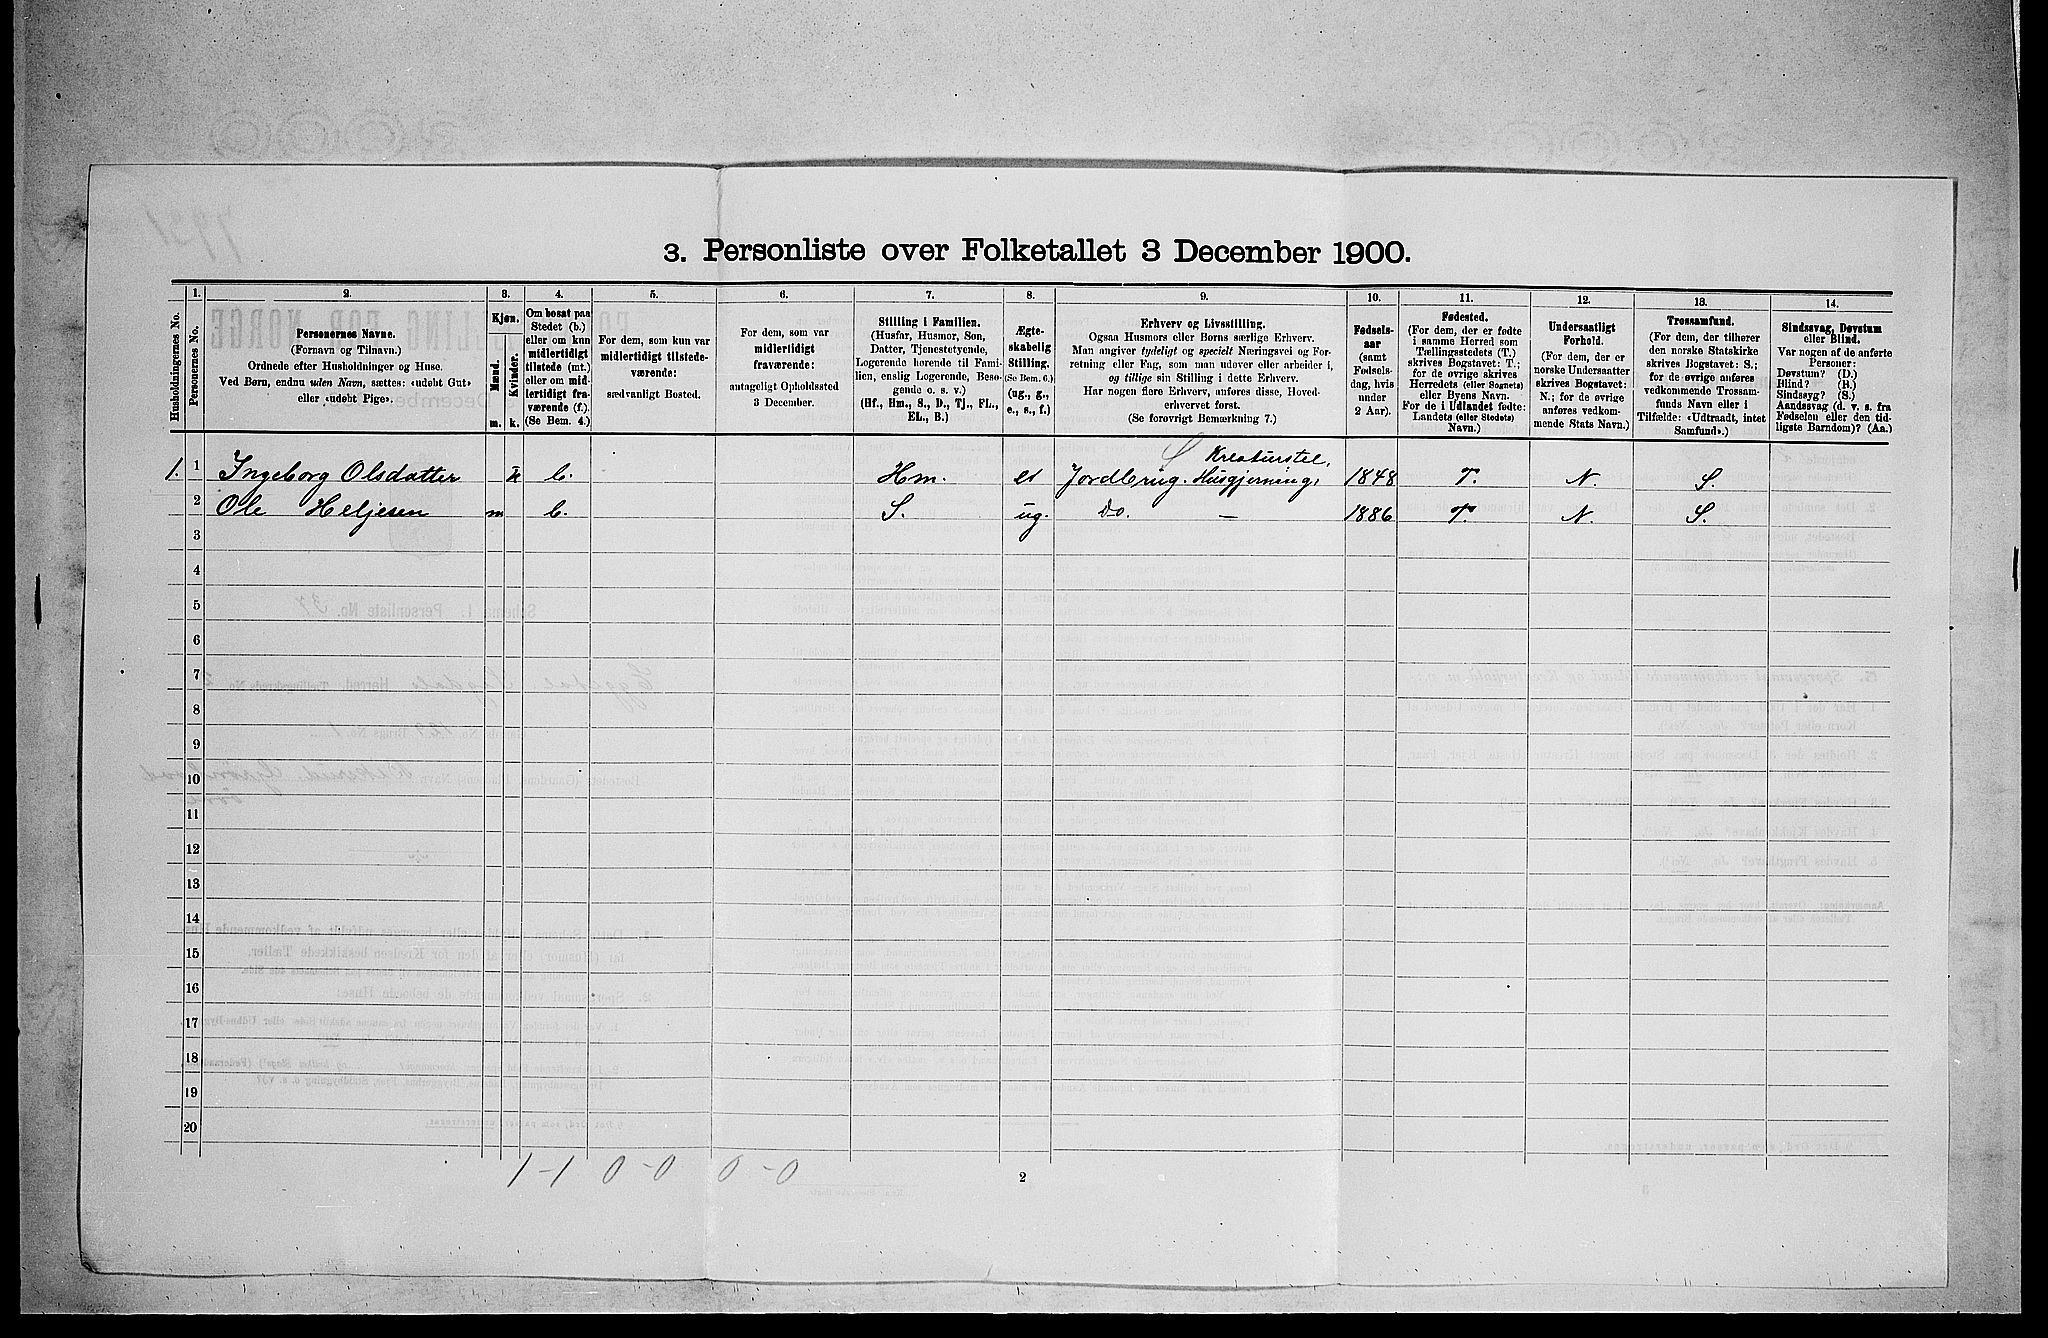 3. Personliste over Folketallet 3 December 1900.
Husholdningernes No.
1.
Personernes No.
2.
Personernes Navne.
(Fornavn og Tilnavn.)
Ordnede efter Husholdninger og Huse.
Ved Børn, endnu uden Navn, sættes: «udøbt Gut»
eller «udøbt Pige».
3.
Kjøn.
Mænd.
Kvinder.
m. k.
4.
Om bosat paa
Stedet (b.)
eller om kun
midlertidigt
tilstede (mt.)
eller om mid-
lertidigt fra-
værende (f.)
(Se Bem. 4.)
5.
For dem, som kun var
midlertidigt tilstede-
værende:
sædvanligt Bosted.
6.
For dem, som var
midlertidigt
fraværende:
antageligt Opholdssted
3 December.
7.
Stilling i Familien.
(Husfar, Husmor, Søn,
Datter, Tjenestetyende,
Logerende hørende til Fami-
lien, enslig Logerende, Besø-
gende o. s. v.)
(Hf., Hm., S., D., Tj., FL.,
EL., B.)
8.
Ægte-
skabelig
Stilling.
(Se Bem. 6.)
(ug., g.,
e., s., f.)
9.
Erhverv og Livsstilling.
Ogsaa Husmors eller Børns særlige Erhverv.
Man angiver tydeligt og specielt Næringsvei og For-
retning eller Fag, som man udøver eller arbeider i,
og tillige sin Stilling i dette Erhverv.
Har nogen flere Erhverv, anføres disse, Hoved-
erhvervet først.
(Se forøvrigt Bemærkning 7.)
10.
Fødsels-
aar
(samt
Fødsels-
dag, hvis
under
2 Aar).
11.
Fødested.
(For dem, der er fødte
i samme Herred som
Tællingsstedets (T.)
skrives Bogstavet: T.;
for de øvrige skrives
Herredets (eller Sognets)
eller Byens Navn.
For de i Udlandet fødte:
Landets (eller Stedets)
Navn.)
12.
Undersaatligt
Forhold.
(For dem, der er
norske Undersaatter
skrives Bogstavet:
N.; for de øvrige
anføres vedkom-
mende Stats Navn.)
13.
Trossamfund.
(For dem, der tilhører
den norske Statskirke
skrives Bogstavet: S.;
for de øvrige anføres
vedkommende Trossam-
funds Navn eller i
Tilfælde: «Udtraadt, intet
Samfund».)
14.
Sindssvag, Døvstum
eller Blind.
Var nogen af de anførte
Personer:
Døvstum? (D.)
Blind? (B.)
Sindssyg? (S.)
Aandssvag (d. v. s. fra
Fødselen eller den tid-
ligste Barndom)? (Aa.)
S Kreaturstel,
1. 1 Ingeborg Olsdatter k b. Hm. e Jordbrug. Husgjerning, 1848 T. N. S.
2 Ole Heljesen m b. S. ug. Do. — 1886 T. N. S.
3
4
5
6
7
8
9
10
11
12
13
14
15
16
17
18
19
20
1-1 0-0 0-0
2